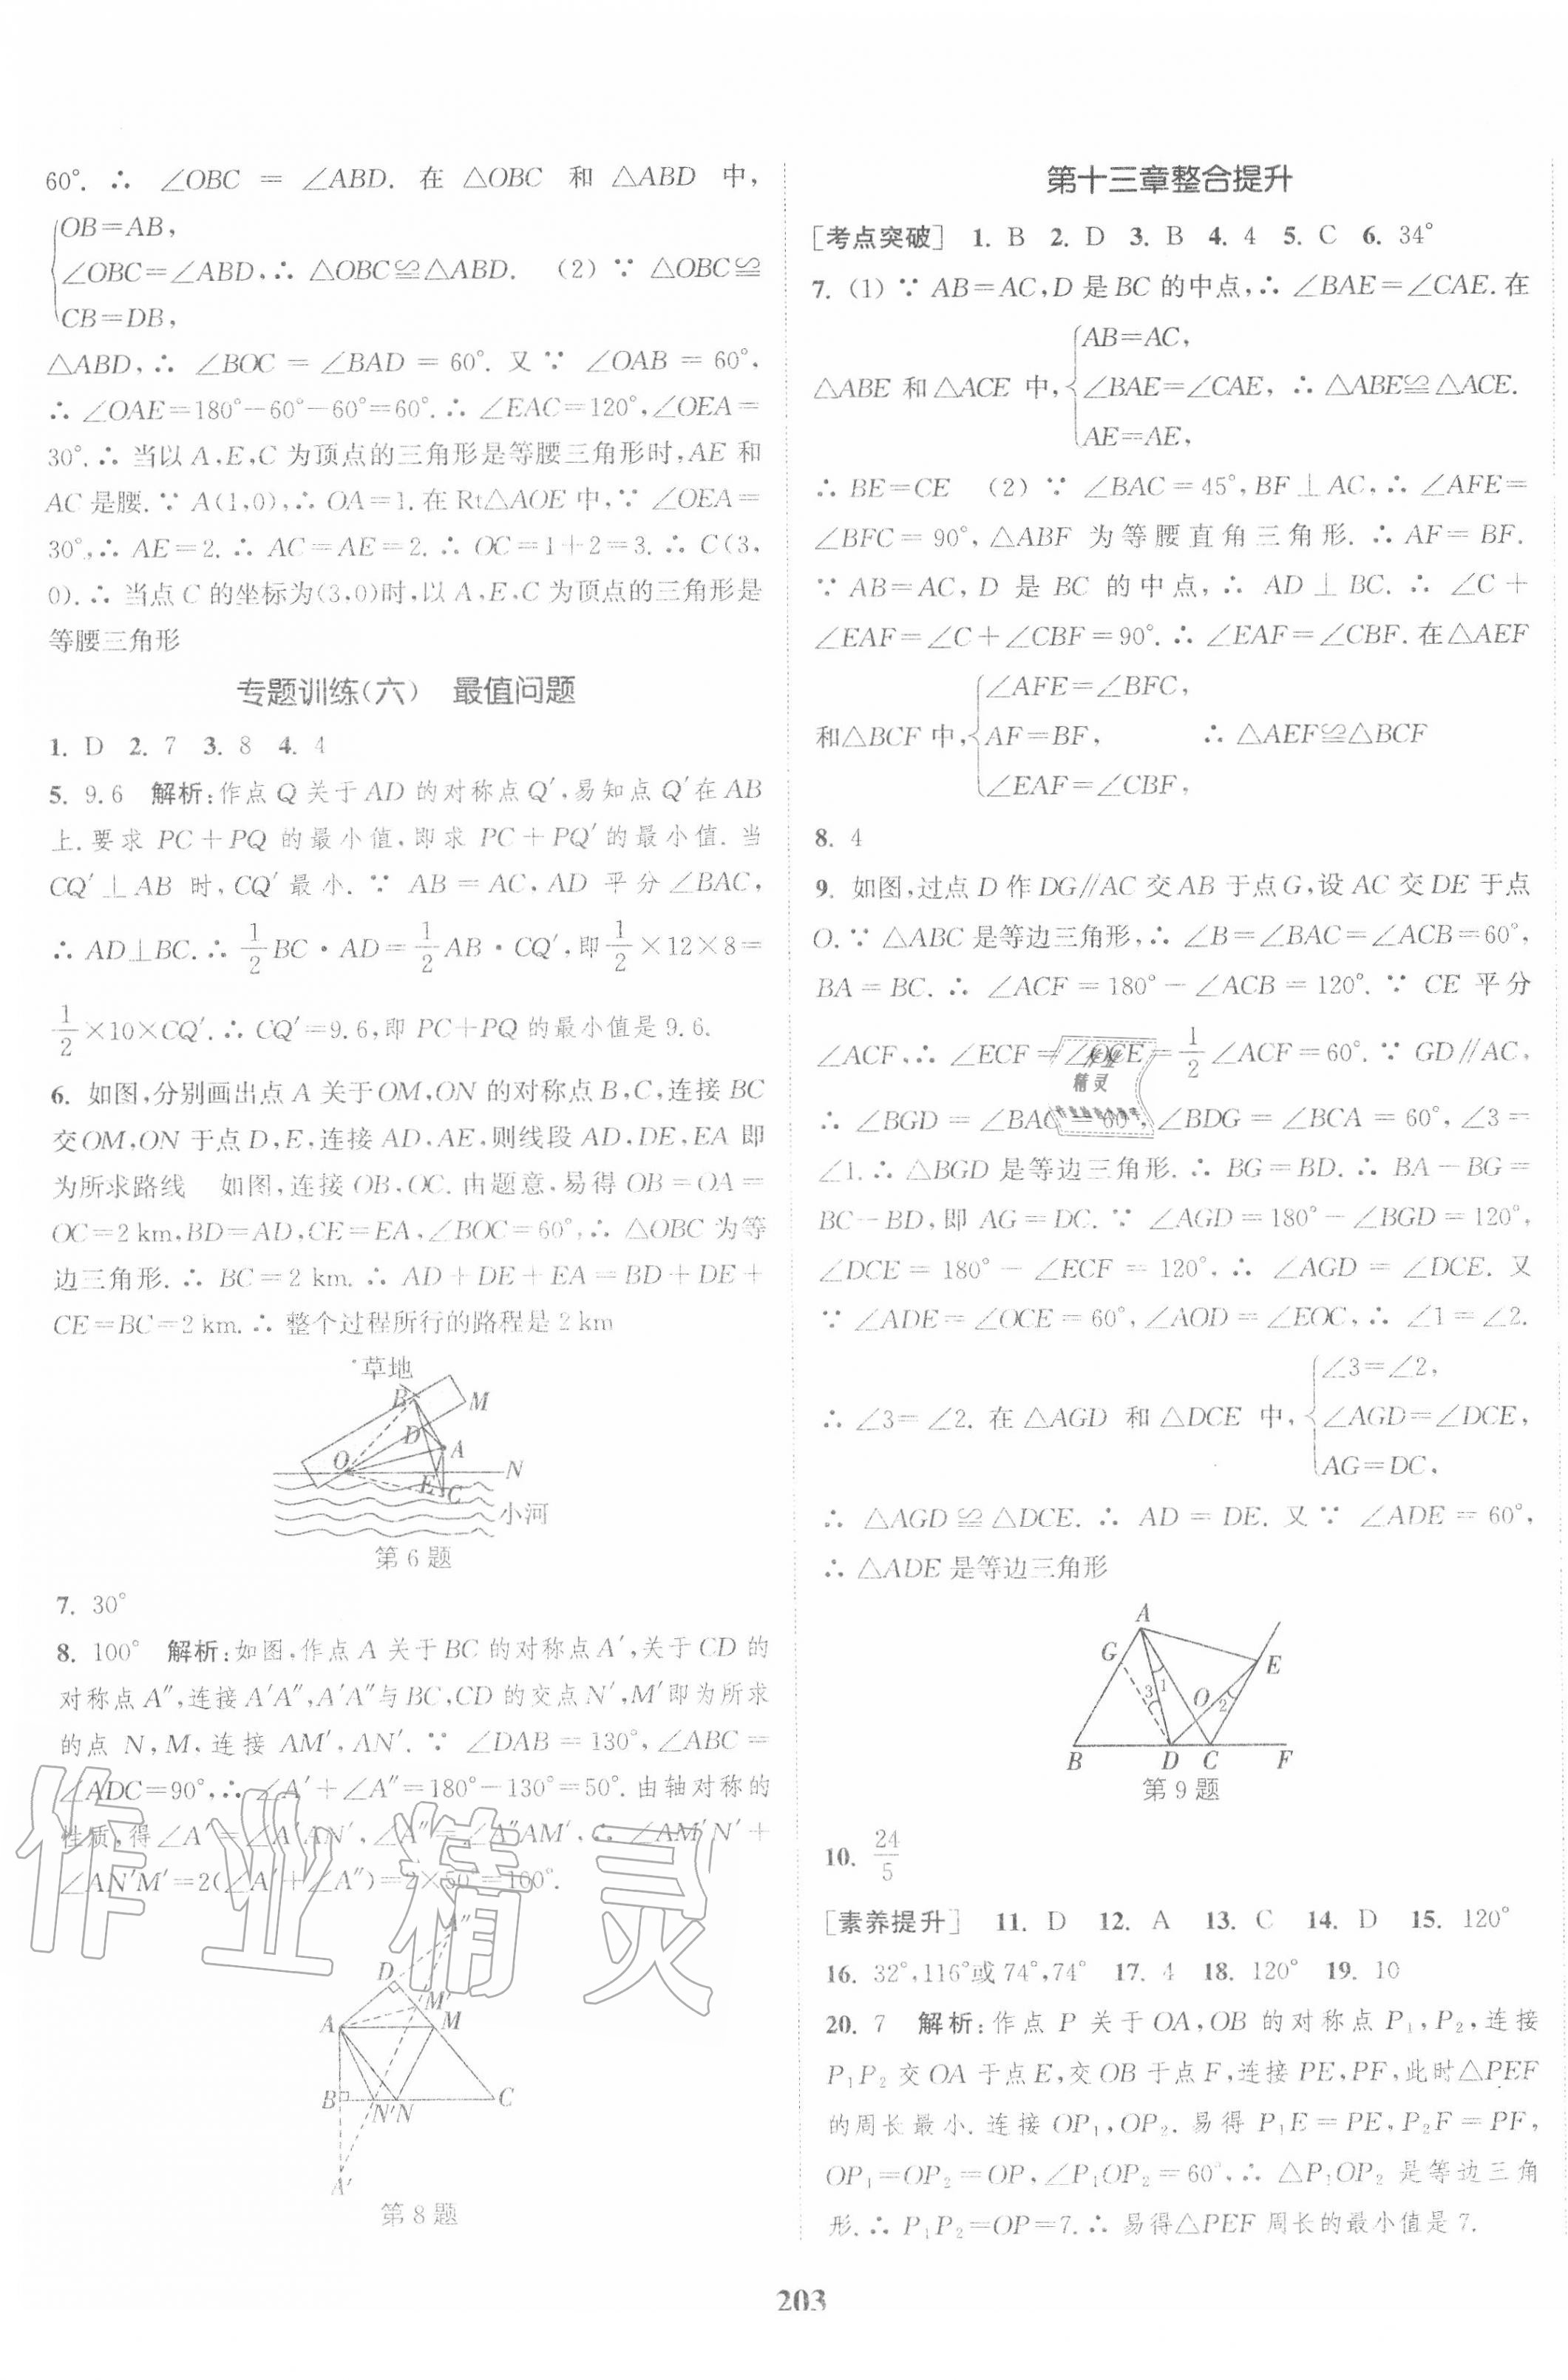 60°. ∴ ∠OBC = ∠ABD. 在 △OBC 和 △ABD 中,
OB=AB,
∠OBC=∠ABD, ∴ △OBC≌△ABD. (2) ∵ △OBC≌
CB=DB,
△ABD, ∴ ∠BOC = ∠BAD = 60°. 又 ∵ ∠OAB = 60°,
∴ ∠OAE=180°-60°-60°=60°. ∴ ∠EAC=120°, ∠OEA=
30°. ∴ 当以 A,E,C 为顶点的三角形是等腰三角形时, AE 和
AC 是腰. ∵ A(1,0), ∴ OA=1. 在 Rt△AOE 中, ∵ ∠OEA=
30°, ∴ AE=2. ∴ AC=AE=2. ∴ OC=1+2=3. ∴ C(3,
0). ∴ 当点 C 的坐标为(3,0)时, 以 A,E,C 为顶点的三角形是
等腰三角形
专题训练(六) 最值问题
1. D 2. 7 3. 8 4. 4
5. 9.6 解析:作点 Q 关于 AD 的对称点 Q′, 易知点 Q′在 AB
上. 要求 PC+PQ 的最小值, 即求 PC+PQ′的最小值. 当
CQ′⊥AB 时, CQ′最小. ∵ AB=AC, AD 平分∠BAC,
∴ AD⊥BC. ∴ 1/2 BC·AD=1/2 AB·CQ′, 即1/2×12×8=
1/2×10×CQ′. ∴ CQ′=9.6, 即 PC+PQ 的最小值是 9.6.
6. 如图, 分别画出点 A 关于 OM,ON 的对称点 B,C, 连接 BC
交 OM,ON 于点 D,E, 连接 AD,AE, 则线段 AD,DE,EA 即
为所求路线 如图, 连接 OB,OC. 由题意, 易得 OB=OA=
OC=2 km, BD=AD, CE=EA, ∠BOC=60°, ∴ △OBC 为等
边三角形. ∴ BC=2 km. ∴ AD+DE+EA=BD+DE+
CE=BC=2 km. ∴ 整个过程所行的路程是 2 km
草地
B M
D
A
O N
E C
小河
第 6 题
7. 30°
8. 100° 解析:如图, 作点 A 关于 BC 的对称点 A′, 关于 CD 的
对称点 A″, 连接 A′A″, A′A″与 BC,CD 的交点 N′,M′即为所求
的点 N,M, 连接 AM′,AN′. ∵ ∠DAB=130°, ∠ABC=
∠ADC=90°, ∴ ∠A′+∠A″=180°-130°=50°. 由轴对称的
性质, 得∠A′=∠A′AN′, ∠A″=∠A″AM′, ∴ ∠AM′N′+
∠AN′M′=2(∠A′+∠A″)=2×50°=100°.
作业精灵
A″
D
M′
A M
B N′N C
A′
第 8 题
第十三章整合提升
[考点突破] 1. B 2. D 3. B 4. 4 5. C 6. 34°
7. (1) ∵ AB=AC, D 是 BC 的中点, ∴ ∠BAE=∠CAE. 在
AB=AC,
△ABE 和△ACE 中, ∠BAE=∠CAE, ∴ △ABE≌△ACE.
AE=AE,
∴ BE=CE (2) ∵ ∠BAC=45°, BF⊥AC, ∴ ∠AFE=
∠BFC=90°, △ABF 为等腰直角三角形. ∴ AF=BF.
∵ AB=AC, D 是 BC 的中点, ∴ AD⊥BC. ∴ ∠C+
∠EAF=∠C+∠CBF=90°. ∴ ∠EAF=∠CBF. 在△AEF
∠AFE=∠BFC,
和△BCF 中, AF=BF, ∴ △AEF≌△BCF
∠EAF=∠CBF,
8. 4
9. 如图, 过点 D 作 DG∥AC 交 AB 于点 G, 设 AC 交 DE 于点
O. ∵ △ABC 是等边三角形, ∴ ∠B=∠BAC=∠ACB=60°,
BA=BC. ∴ ∠ACF=180°-∠ACB=120°. ∵ CE 平分
∠ACF, ∴ ∠ECF=∠OCE=1/2∠ACF=60°. ∵ GD∥AC,
精灵
∴ ∠BGD=∠BAC=60°, ∠BDG=∠BCA=60°, ∠3=
∠1. ∴ △BGD 是等边三角形. ∴ BG=BD. ∴ BA-BG=
BC-BD, 即 AG=DC. ∵ ∠AGD=180°-∠BGD=120°,
∠DCE=180°-∠ECF=120°, ∴ ∠AGD=∠DCE. 又
∵ ∠ADE=∠OCE=60°, ∠AOD=∠EOC, ∴ ∠1=∠2.
∠3=∠2,
∴ ∠3=∠2. 在△AGD 和△DCE 中, ∠AGD=∠DCE,
AG=DC,
∴ △AGD≌△DCE. ∴ AD=DE. 又 ∵ ∠ADE=60°,
∴ △ADE 是等边三角形
A
G
E
3 1 O 2
B D C F
第 9 题
10. 24/5
[素养提升] 11. D 12. A 13. C 14. D 15. 120°
16. 32°,116°或 74°,74° 17. 4 18. 120° 19. 10
20. 7 解析:作点 P 关于 OA,OB 的对称点 P₁,P₂, 连接
P₁P₂ 交 OA 于点 E, 交 OB 于点 F, 连接 PE,PF, 此时△PEF
的周长最小. 连接 OP₁,OP₂. 易得 P₁E=PE, P₂F=PF,
OP₁=OP₂=OP, ∠P₁OP₂=60°, ∴ △P₁OP₂ 是等边三角
形. ∴ P₁P₂=OP=7. ∴ 易得△PEF 周长的最小值是 7.
203